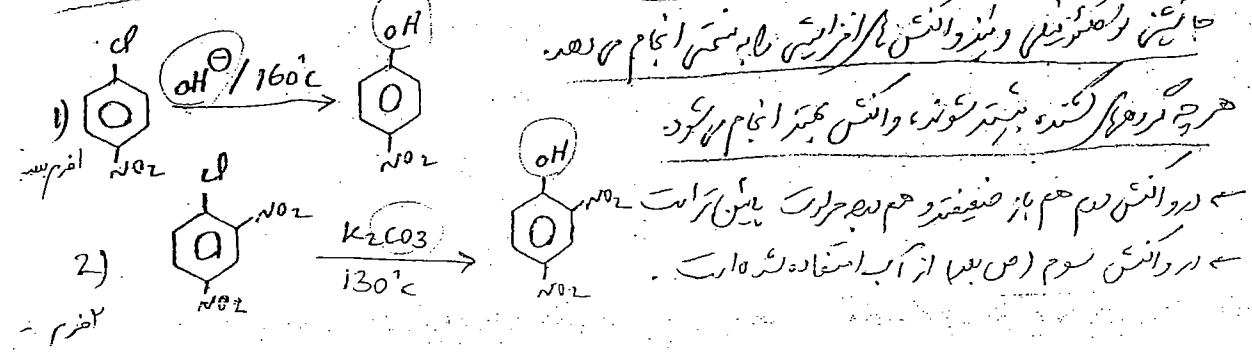 جانشینی نوکلئوفیلی و نیز واکنش های افزایشی را به سختی انجام می دهد.
هر چه گروههای کشنده بیشتر شوند، واکنش بهتر انجام می شود.
← در واکنش دوم هم باز ضعیفتر و هم درجه حرارت پائین تر است
← در واکنش سوم (ص بعد) از آب استفاده شده است.
1) Cl OH⊖ / 160°C OH
NO2 NO2
2) Cl NO2 K2CO3 OH NO2
130°C
NO2 NO2